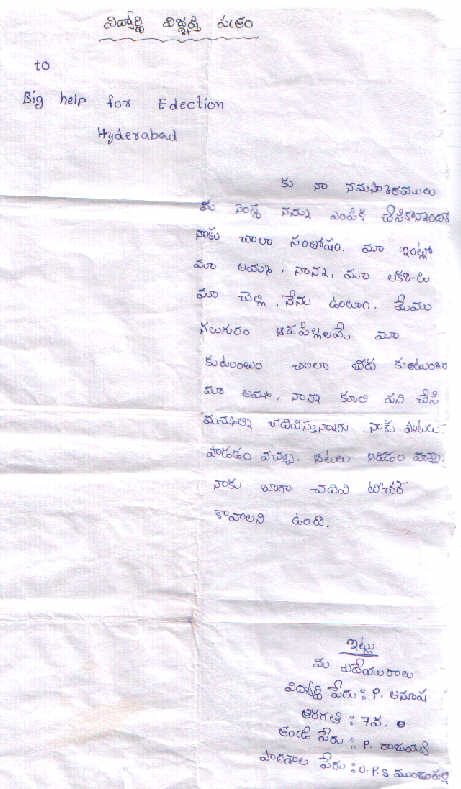 విద్యార్థి విజ్ఞప్తి పత్రం
to
Big help for Edection
Hyderabad
కు నా నమస్కారములు
సంస్థ నన్ను ఎంపిక
నాకు చాలా సంతోషం. మా ఇంట్లో
మా అమ్మ, నాన్న, మా
మా చెల్లి, నేను ఉంటాం. మేము
నలుగురం ఆడపిల్లలమే. మా
కుటుంబం చాలా బీద కుటుంబం
మా అమ్మ, నాన్న కూలి పని చేసి
మమ్మల్ని చదివిస్తున్నారు. నాకు పాటలు
పాడడం
నాకు బాగా చదివి టీచర్
కావాలని ఉంది.
ఇట్లు
మీ విధేయురాలు
విద్యార్థి పేరు : P. అనూష
తరగతి : 7వ.
తండ్రి పేరు : P.
పాఠశాల పేరు : U.P.S